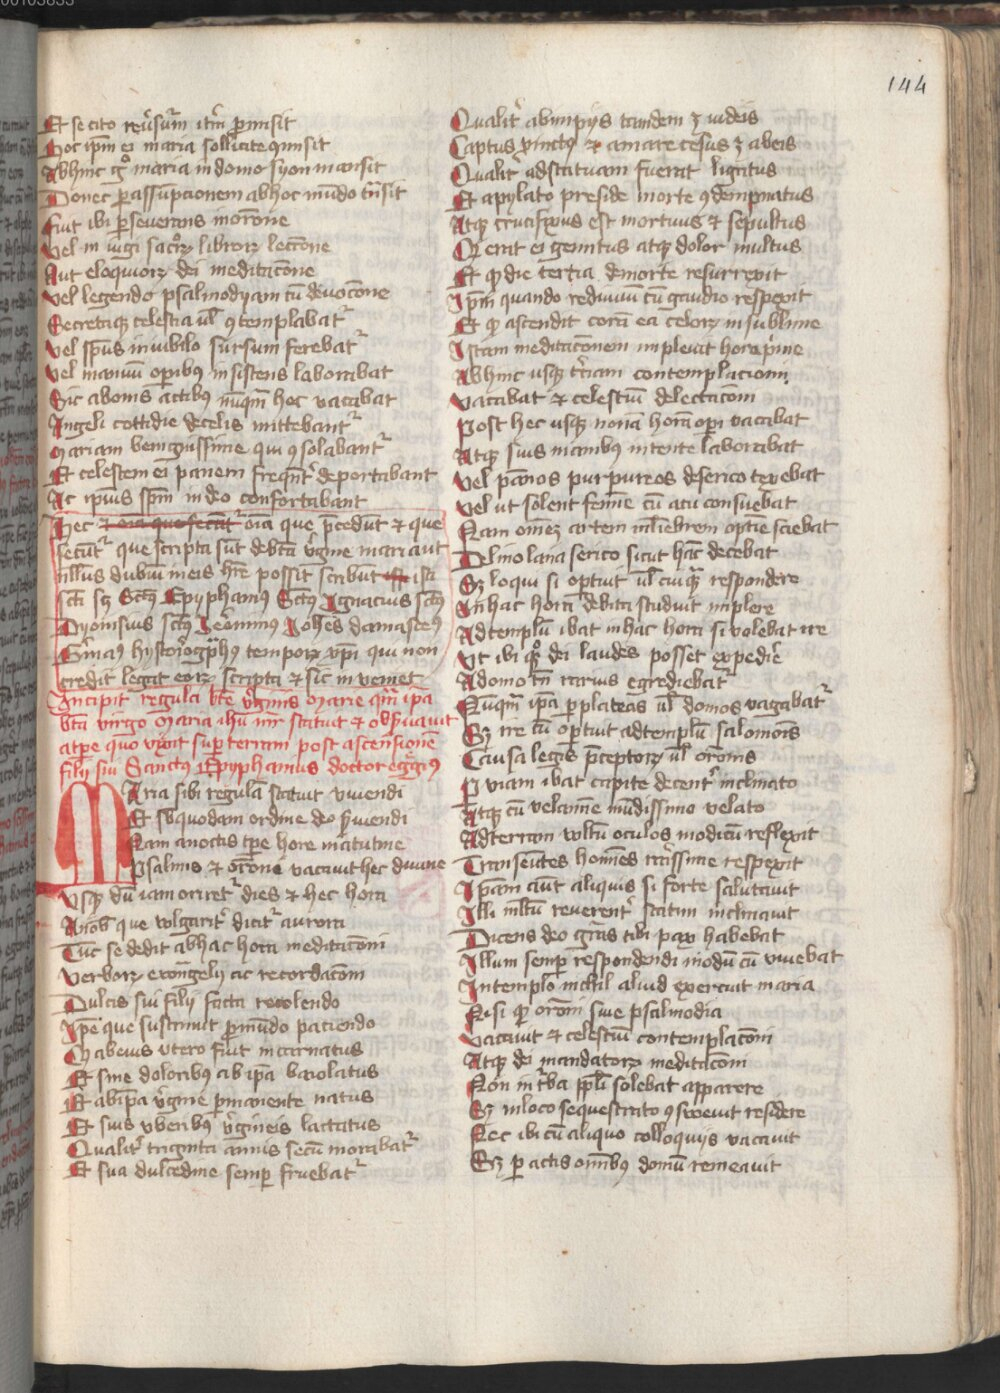 144
Et se cito reu̾suru̅ it̾m p̲misit
Hoc ip̅m ei maria sollicite q̲misit
Abhinc g̊ maria in domo syon mansit
Donec p̲ assu̅pcionem ab hoc mu̅do t̅nsit
Fuit ibi p̲seuerans in or̅one
Vel in iugi sacro̅ꝝ libroꝝ lect̅one
Aut eloquioꝝ dei meditac̅one
Vel legendo psalmodyam cu̅ deuoc̅one
Secretaqꝫ celestia ul̅ ꝯtemplabat᷑
Vel sp̅us in iubilo sursum ferebat᷑
Vel manuu̅ op̲ibꝰ insistens laborabat
Sic a bonis actibꝰ nu̅qͣm hec vacabat
Angeli cottidie de celis mittebant᷑
Mariam benignissime qui ꝯsolabant᷑
Et celestem ei panem freque̅t̾ deportabant
Ac ipius sp̅m in deo confortabant
Hec oi̅a que p̅cedu̅t et que
secu̅t᷑ que scripta su̅t de bt̅a v̾gine maria ut
nullus dubiu̅ in eis h̅re possit scribu̅t isti
sc̅i sꝫ Sc̅us Epyphaniꝰ Sc̅us Ignacius sc̅us
Dyonisius sc̅us Ieronimꝰ Ioh̅es damasceꝰ
hystoriog̾phꝰ temporꝝ xp̅i qui non
credit legat eoꝝ scripta et sic inueniet
Incipit regula bt̅e v̾ginis Marie qua̅ ip̅a
bt̅a virgo Maria ih̅u mr̅ statuit et obs̾uauit
a tp̅e quo vixit sup̲ terram post ascensione̅
filij sui Sanctus Epyphanius doctor eg̾giꝰ
Maria sibi regula̅ statuit viuendi
Et s̅b quodam ordine deo s̾uiendi
Nam a noctis tp̅e hore matutine
Psalmis et or̅one vacauit hec diuine
Vsqꝫ du̅ iam oriret᷑ dies et hec hora
A nob̅ que volgarit̾ dicit᷑ aurora
Tu̅c se dedit ab hac hora meditac̅oni
Verboꝝ ewangelij ac recordac̅oni
Dulcis sui filij facta recolendo
Ip̅e que sustinuit p̲ mu̅do paciendo
Et sine doloribꝰ ab ip̅a baiolatus
Et ab ip̅a v̾gine p̲manente natus
Et suis vberibꝰ v̾gineis lactatus
Qualit̾ triginta annis secu̅ morabat᷑
Et sua dulcedine semp̲ fruebat᷑
Qualit̾ ab impijs tandem ꝫ iudeis
Captus vinctꝰ et amare cesus ꝫ ab eis
Qualit̾ ad statuam fuerat ligatus
Et a pylato preside morte ꝯde̅pnatus
Atqꝫ crucifixus est mortuus et sepultus
Q̲ erat ei gemitus atqꝫ dolor multus
Et q̲ die tertia de morte resurrexit
Ip̅m quando rediuiuu̅ cu̅ gaudio respexit
Et q̲ ascendit cora̅ ea celoꝝ in sublime
Istam meditac̅onem impleuit hora p̾me
Abhinc usqꝫ t̾ciam contemplacioni
Vacabat et celestiu̅ delectac̅oni
Post hec usqꝫ nona̅ hora̅ op̲i vacabat
Atqꝫ suis manibus intente laborabat
Vel pa̅nos purpureos de serico texebat
Vel ut solent femi̅e cu̅ acu consuebat
Nam om̅e̅ artem mulieb̾em optie̅ sciebat
De lino lana serico sicut ha̅c decebat
Sꝫ loqui si optuit ul̅ cuiqͣ respondere
In hac hora debita studuit implere
Ad templu̅ ibat in hac hora si volebat ire
Vt ibi qꝫ dei laudes posset expedire
A domo tn̅ rarius egrediebat᷑
Nu̅qͣm ip̅a p̲ plateas ul̅ domos vagabat᷑
Sꝫ ire cu̅ optuit ad templu̅ salomonis
Causa legis p̅ceptoꝝ ul̅ or̅onis
P̲ viam ibat capite decent̾ inclinato
Atqꝫ cu̅ velami̅e mu̅dissimo velato
Ad terram vultu̅ oculos modicu̅ reflexit
Transeu̅tes homi̅es rarissime respexit
Ip̅am cu̅t aliquis si forte salutauit
Illi multu̅ reuerent̾ statim inclinauit
Dicens deo gr̅as tibi pax habebat
Illum semp̲ respondendi modu̅ cu̅ viuebat
In templo nichil aliud exercuit maria
Nisi q̲ or̅oni siue psalmodia
Vacauit et celestiu̅ contemplac̅oni
Atqꝫ dei mandatoꝝ meditac̅oni
Non in t̾ba pp̅li solebat apparere
Sꝫ in loco sequestrato ꝯsweuit residere
Nec ibi cu̅ aliquo colloquijs vacauit
Sꝫ p̲actis om̅ibꝰ domu̅ remeauit